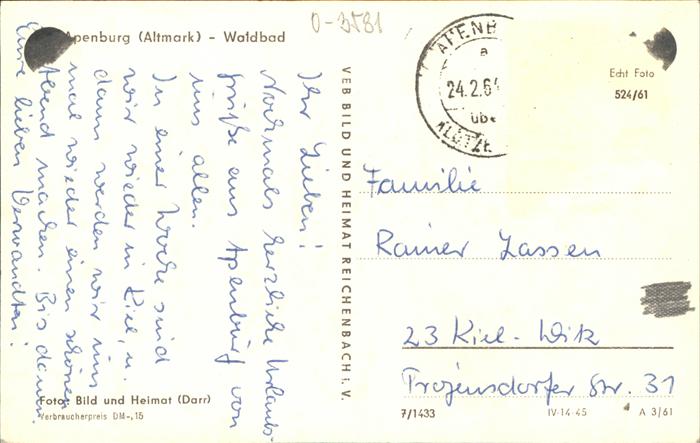 0-3581
Apenburg (Altmark) - Waldbad
Ihr Lieben!
Nochmals herzliche Urlaubs-
grüße aus Apenburg von
uns allen.
In einer Woche sind
wir wieder in Kiel, u.
dann werden wir uns
mal wieder einen schönen
Abend machen. Bis dann.
Eure lieben Verwandten!
Foto: Bild und Heimat (Darr)
Verbraucherpreis DM -,15
VEB BILD UND HEIMAT REICHENBACH i. V.
APENB
a
24.2.6
übe
KLÖTZE
Echt Foto
524/61
Familie
Rainer Lassen
23 Kiel-Wik
Projensdorfer Str. 31
7/1433
IV-14-45
A 3/61